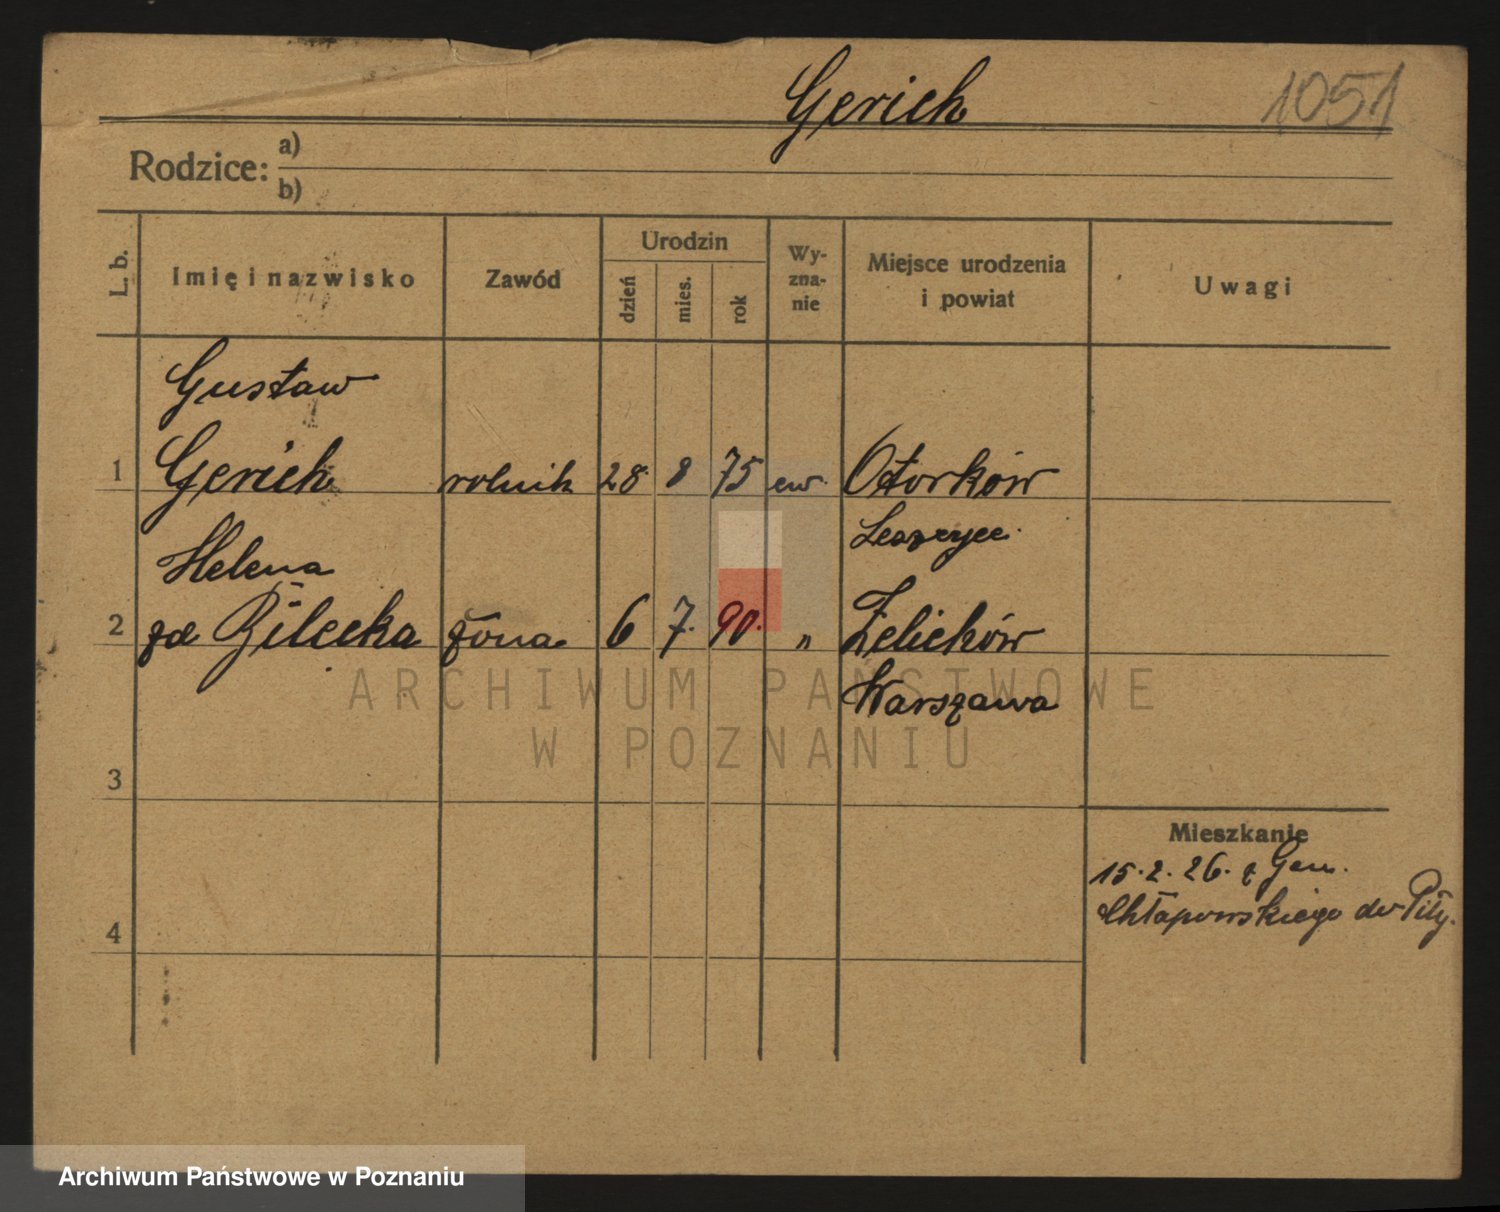 Gerich
1051
Rodzice: a)
b)
L. b.
Imię i nazwisko
Zawód
Urodzin
dzień
mies.
rok
Wy-
zna-
nie
Miejsce urodzenia
i powiat
Uwagi
Gustaw
1 Gerich rolnik 28 8 75 ew. Ozorków
Helena
2 Zelichów żona 6 7. 90. "
Warszawa
3
Mieszkanie
15.2.26. z Gen.
Chłapowskiego do Piły.
4
ARCHIWUM PAŃSTWOWE
W POZNANIU
Archiwum Państwowe w Poznaniu